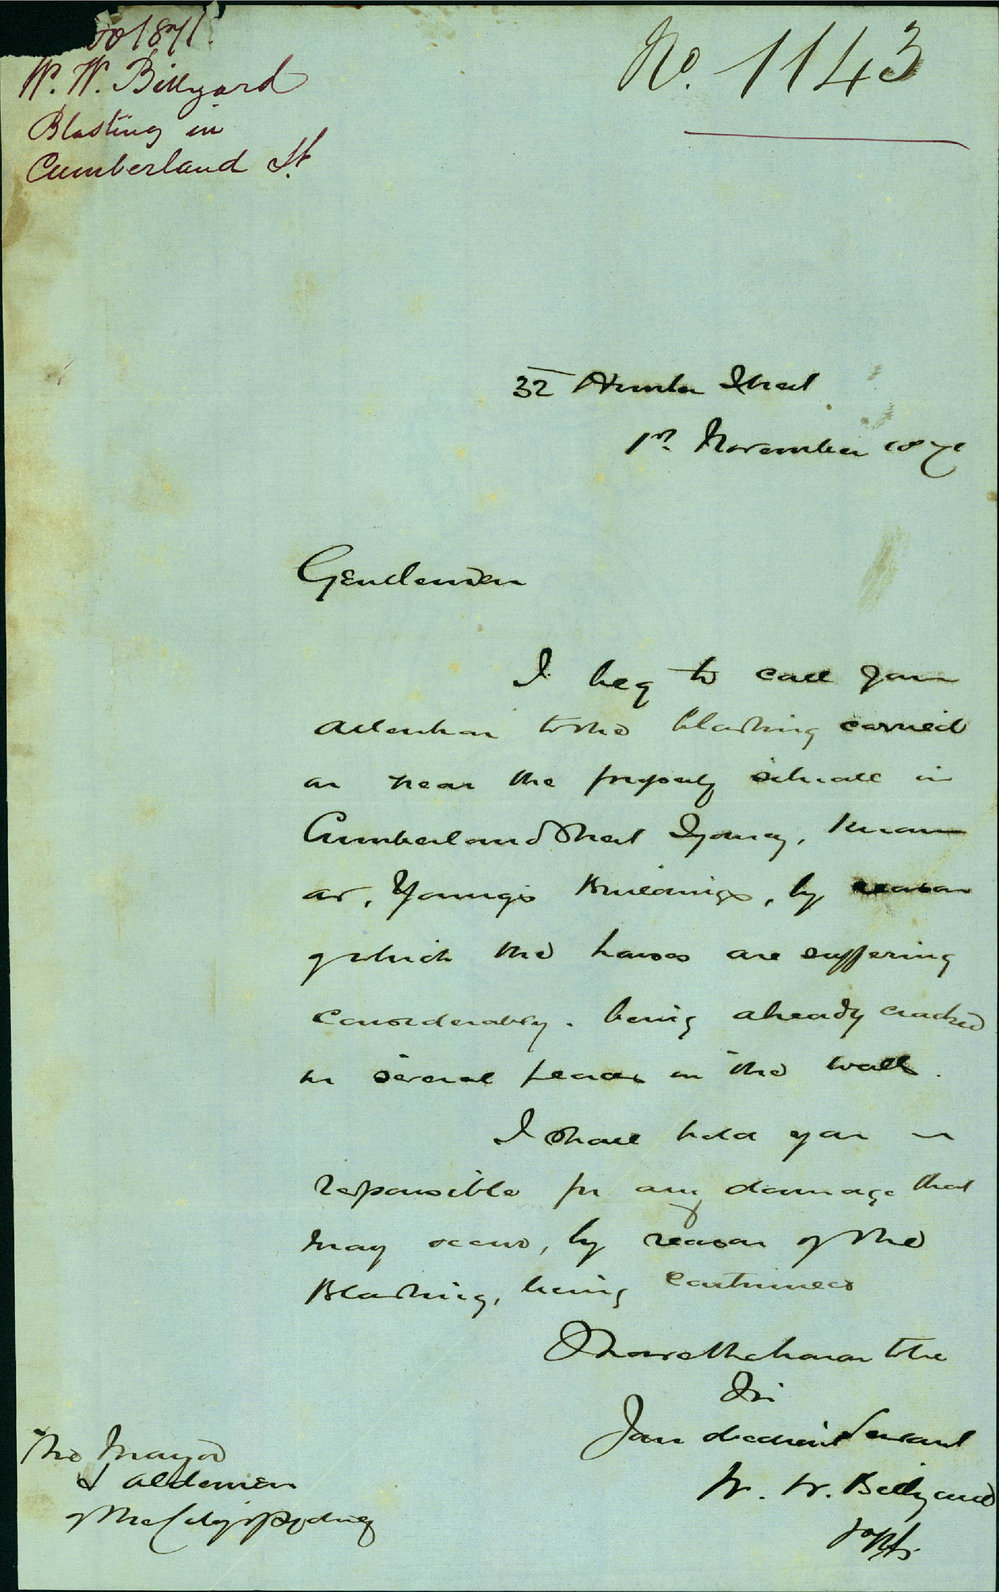 1871.
W. W. Billyard
Blasting in
Cumberland St.
No. 1143
32 Hunter Street
1st November 1871
Gentlemen
I beg to call your
attention to the blasting carried
on near the property situate in
Cumberland Street Sydney, known
as, Young's Buildings, by reason
of which the houses are suffering
considerably. being already cracked
in several places in the walls.
I shall hold you
responsible for any damage that
may occur, by reason of the
Blasting, being continued
I have the honor to be
Sir
Your obedient Servant
W. W. Billyard
The Mayor
& Aldermen
of the City of Sydney